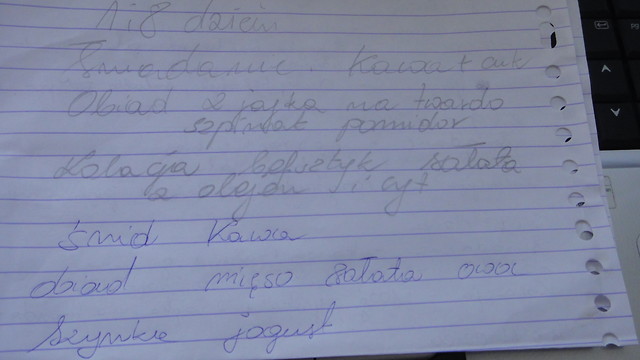 1 i 8 dzień
Śniadanie Kawa + cuk
Obiad 2 jajka na twardo
szpinak pomidor
Kolacja befsztyk sałata
z olejem i cyt
śnid Kawa
obiad mięso sałata owoc
Szynka jogurt